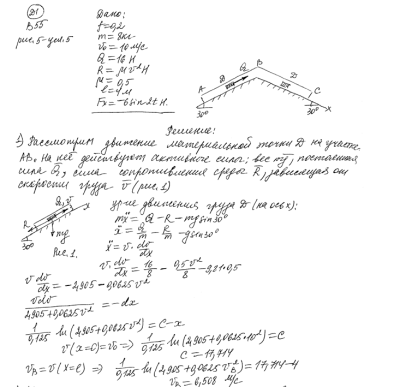 Д1
В55
рис.5-усл.5
Дано:
f=0,2
m=8кг
v₀=10 м/с
Q=16 Н
R=μv² Н
μ=0,5
l=4м
Fx=-6sin2t Н.
A D Q B D C x
30° 30°
Решение:
1) Рассмотрим движение материальной точки D на участке
АВ. На неё действуют активные силы: вес mg, постоянная
сила Q, сила сопротивления среды R, зависящая от
скорости груза v (рис.1)
R Q, v x
mg
30°
Рис.1.
ур-ие движения груза D (на ось x):
mẍ = Q - R - mg sin30°
ẍ = Q/m - R/m - g sin30°
ẍ = v·dv/dx
v·dv/dx = 16/8 - 0,5v²/8 - 9,81·0,5
v dv/dx = -4,905 - 0,0625v²
vdv/(4,905+0,0625v²) = -dx
1/0,125 ln(4,905+0,0625v²) = C-x
v(x=0)=v₀ ⇒ 1/0,125 ln(4,905+0,0625·10²) = C
C = 17,714
v_B = v(x=l) ⇒ 1/0,125 ln(4,905+0,0625v_B²) = 17,714-4
v_B = 6,508 м/с